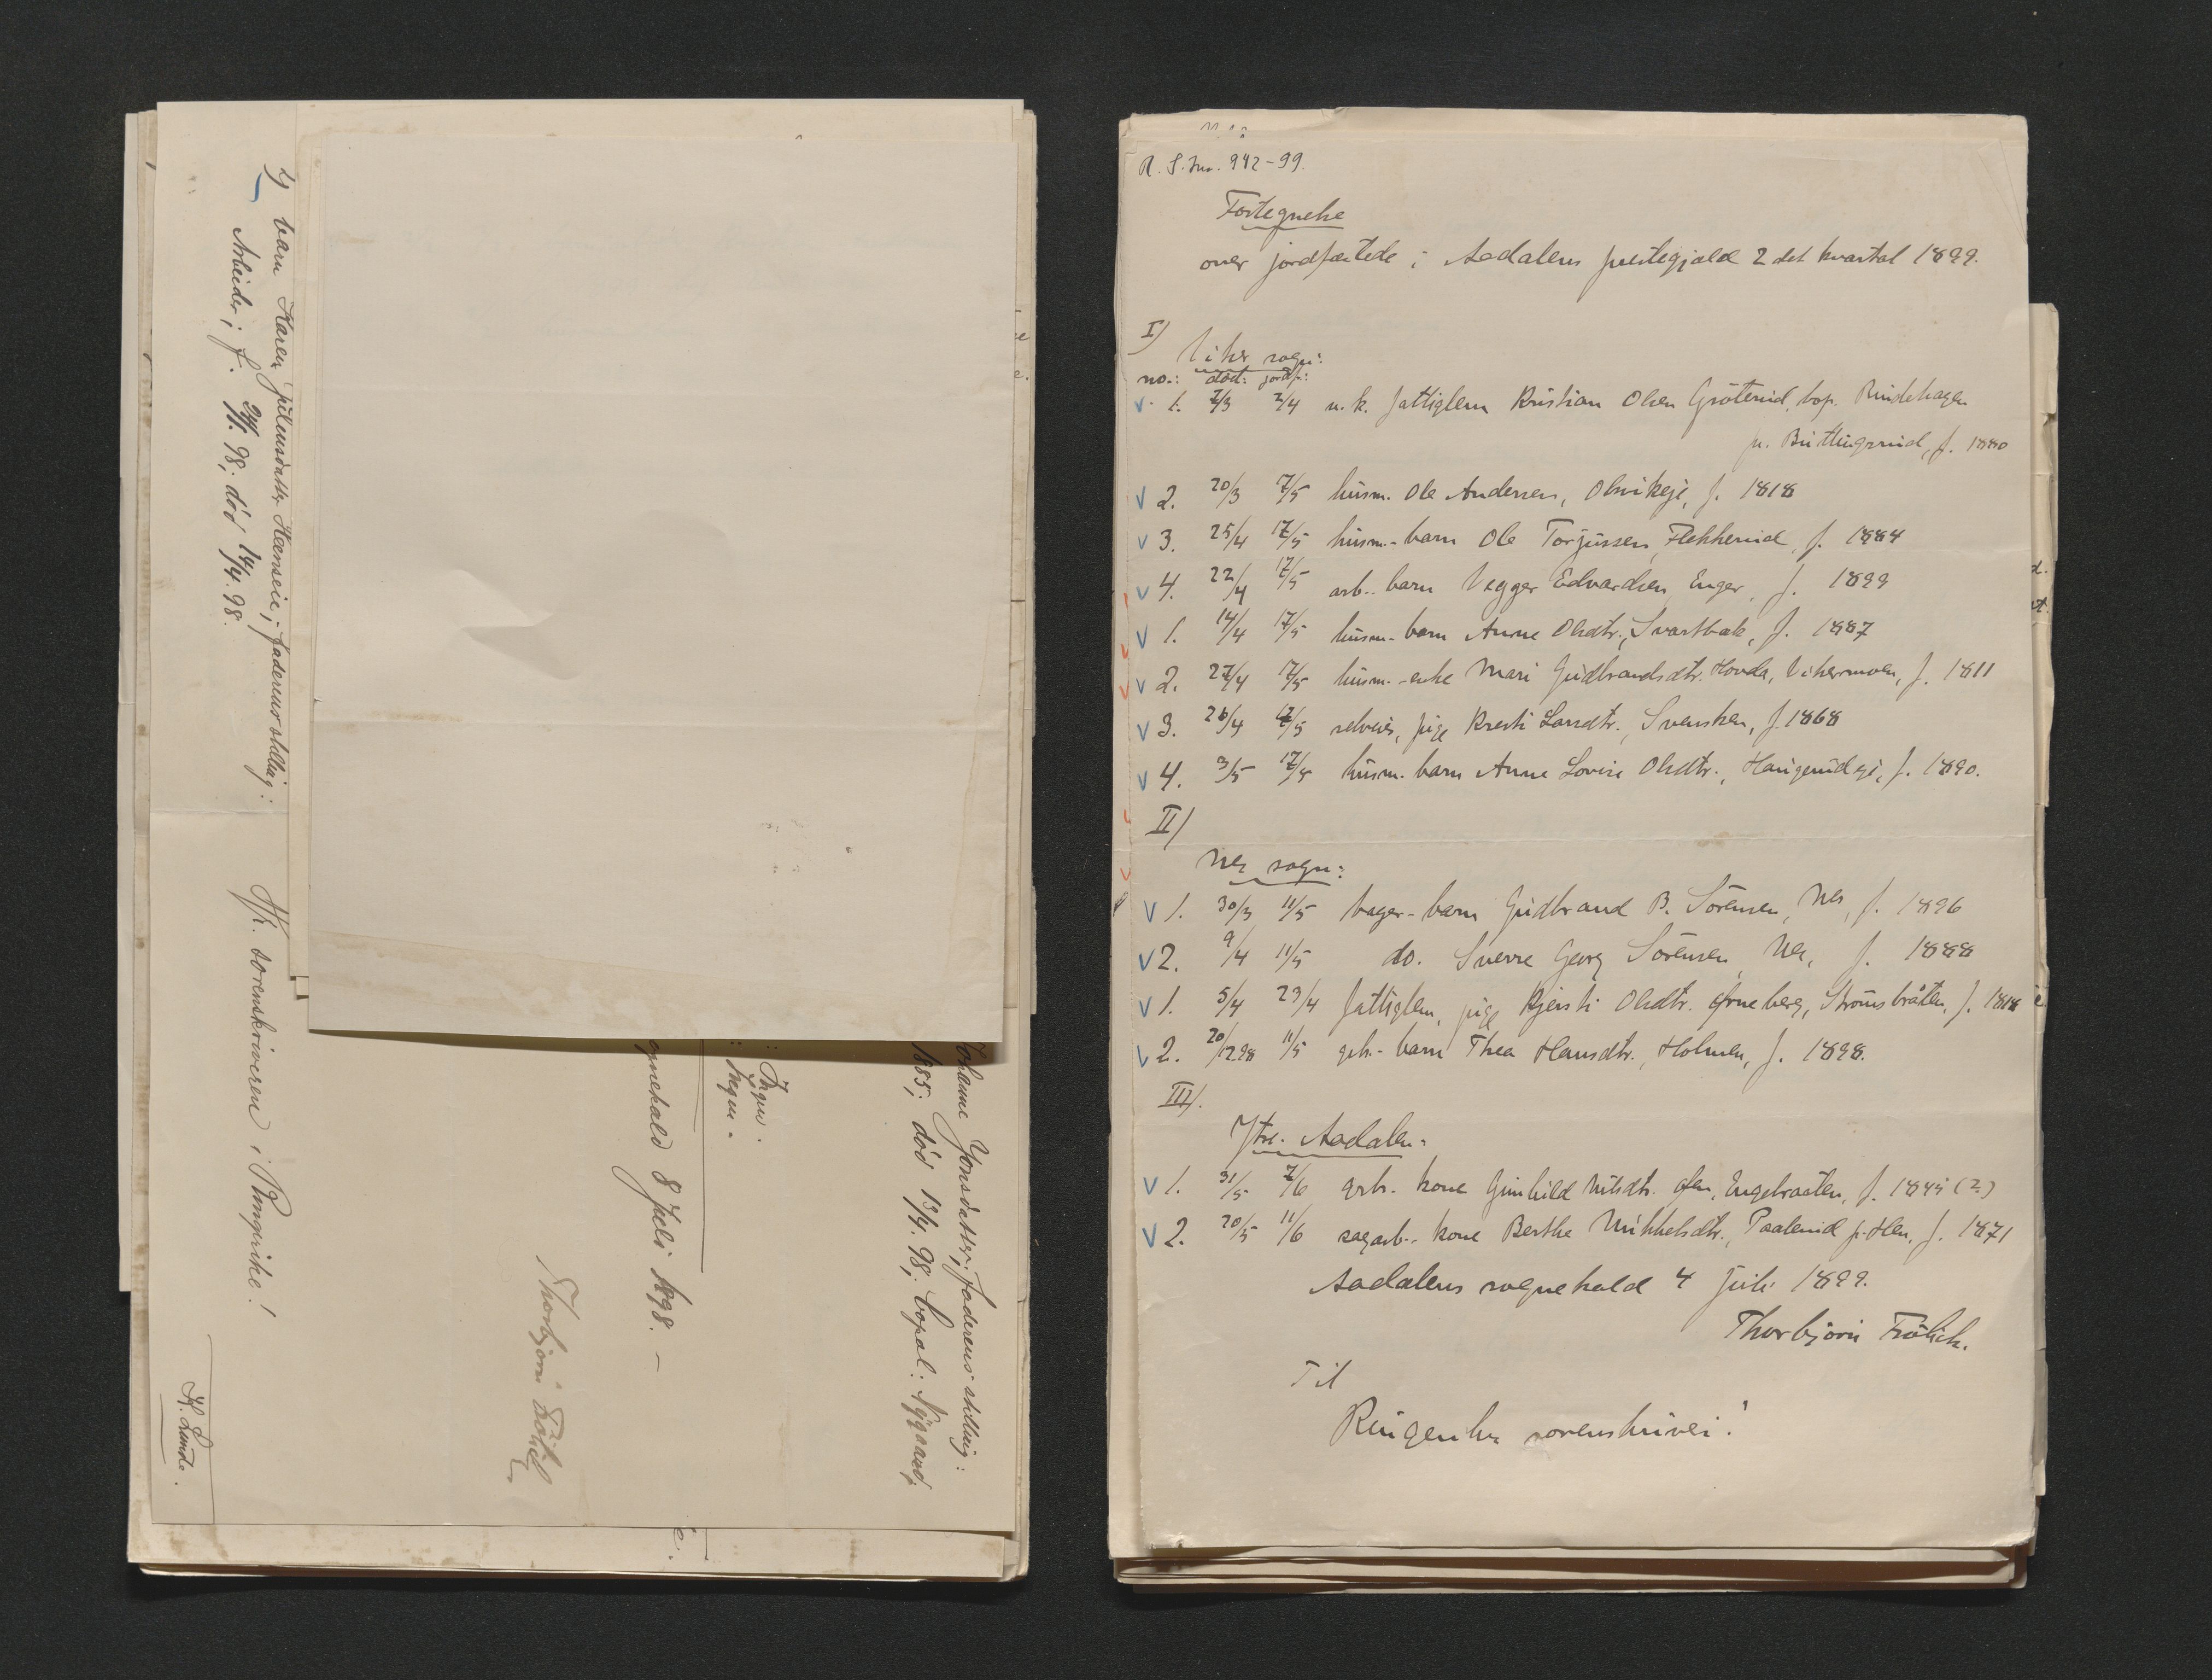 2) barn Karen Juliusdatter Hænseie; faderens stilling:
Arbeider; f. 24/1. 98; død 14/4. 98.
Hr. sorenskriveren i Ringerike!
K. Lunde.
Johanne Jonsdatter; faderens stilling:
1885; død 13/4. 98; bopæl: Nygaard,
: Ingen.
: Ingen.
ognekald 8 Juli 1898. –
Thorbjørn Frölich
R. S. Nr. 942-99.
Fortegnelse
over jordfæstede i Aadalens prestegjæld 2det kvartal 1899.
I)
Viker sogn:
no.: død: jordf.:
1. 7/3 2/4 u. k. fattiglem Kristian Olsen Gröterud, bop. Rindehagen
p. Buttingsrud, f. 1880
2. 20/3 17/5 husm. Ole Andersen, Olsvikeje, f. 1818
3. 25/4 17/5 husm.-barn Ole Torjussen, Flekkerud, f. 1884
4. 22/4 17/5 arb.-barn Vegger Edvardsen, Enger, f. 1899
1. 14/4 17/5 husm.-barn Anne Olsdtr., Svartbæk, f. 1887
2. 27/4 17/5 husm.-enke Mari Gudbrandsdtr. Hovda, Vikermoen, f. 1811
3. 26/4 17/5 selveier, pige Kresti Larsdtr., Svensken, f. 1868
4. 3/5 17/5 husm. barn Anne Lovise Olsdtr., Haugerudeje, f. 1890.
II)
Nes sogn:
1. 30/3 11/5 bager-barn Gudbrand B. Sörensen, Nes, f. 1896
2. 9/4 11/5 do. Sverre Georg Sörensen, Nes, f. 1888
1. 5/4 23/4 fattiglem, pige Kjersti Olsdtr. Arneberg, Strömsbråten, f. 1818
2. 20/12 98 11/5 grb.-barn Thea Hansdtr., Holmen, f. 1898.
III).
Ytre Aadalen:
1. 31/5 7/6 grb. kone Gunhild Nilsdtr. Engebraaten, f. 1845 (?)
2. 20/5 11/6 sagarb.-kone Berthe Mikkelsdtr., Paalerud p. Hen, f. 1871
Aadalens sognekald 4 juli 1899.
Thorbjörn Frölich.
Til
Ringerikes sorenskriveri!